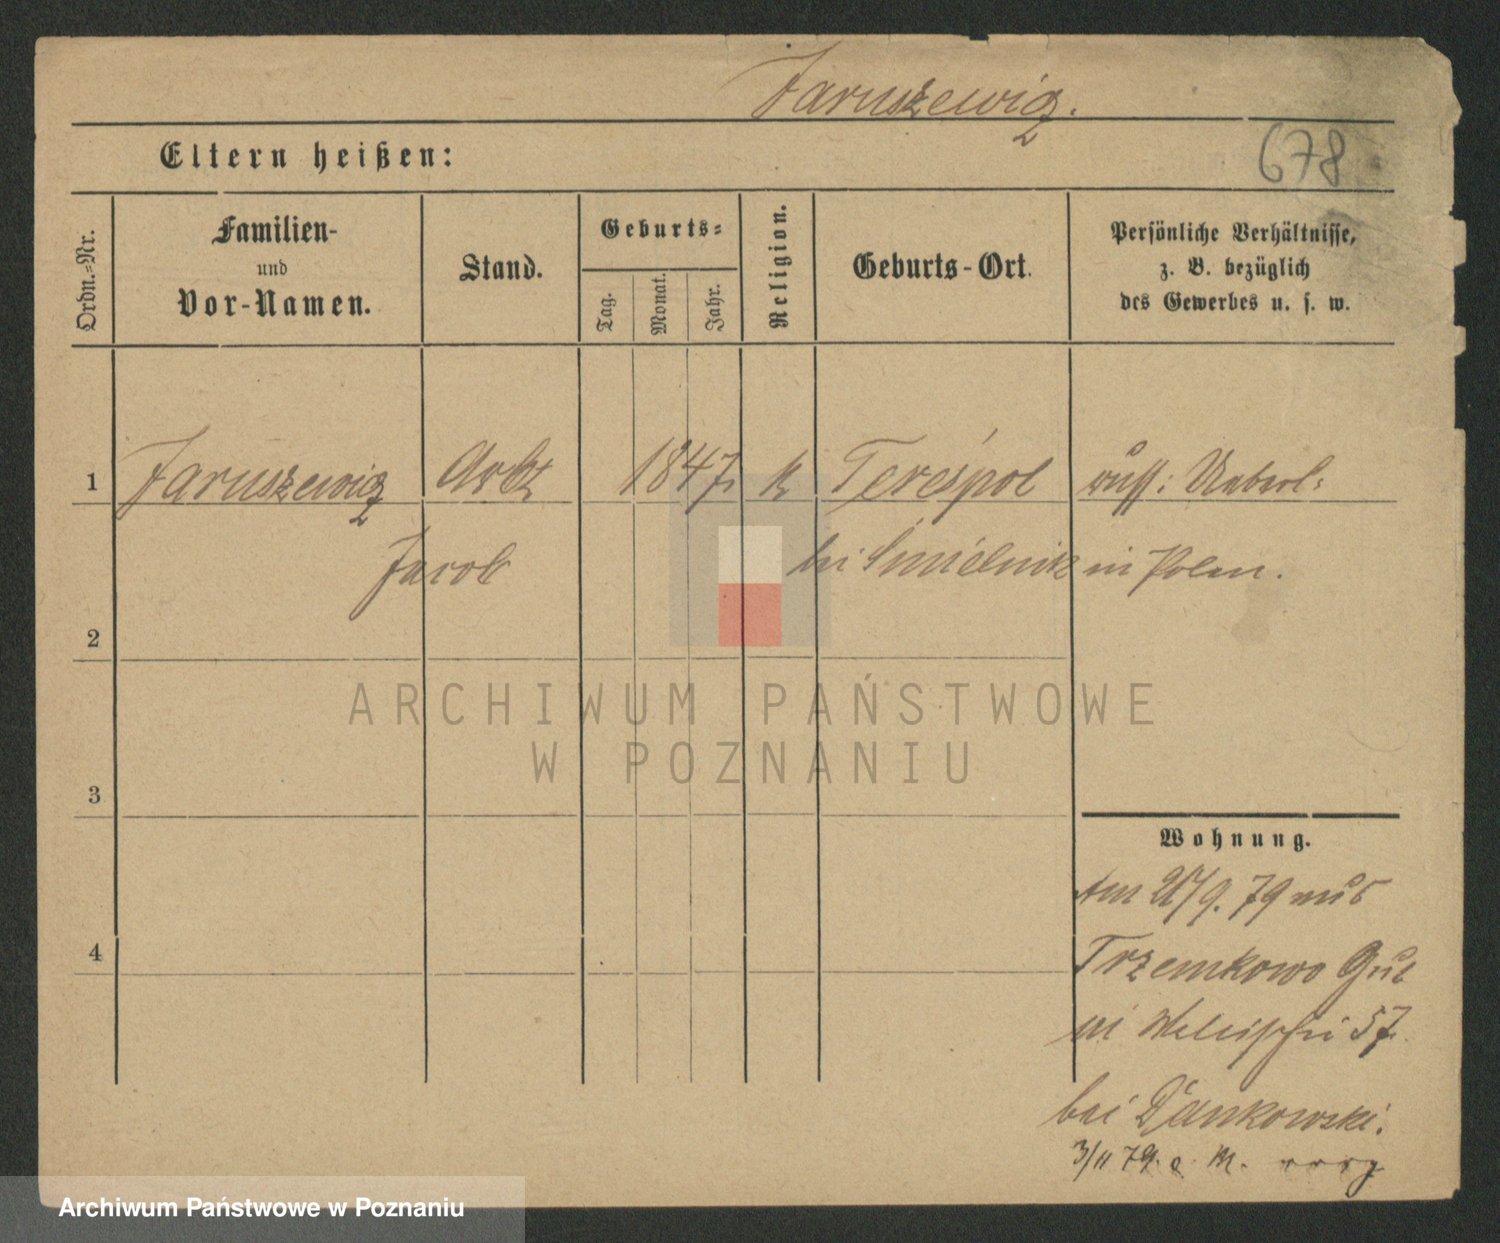 Jaruszewicz.
Eltern heißen:
678
Ordn.-Nr.
Familien-
und
Vor-Namen.
Stand.
Geburts-
Tag.
Monat.
Jahr.
Religion.
Geburts-Ort.
Persönliche Verhältnisse,
z. B. bezüglich
des Gewerbes u. s. w.
1 Jaruszewicz Arbt 1847. k Terespol russ: Unterl:
Jacob bei in Polen.
2
3
4
ARCHIWUM PAŃSTWOWE
W POZNANIU
Wohnung.
Am /9. 79 aus
Trzemkowo Gut
57.
bei Dankowski.
3/11 79.
Archiwum Państwowe w Poznaniu